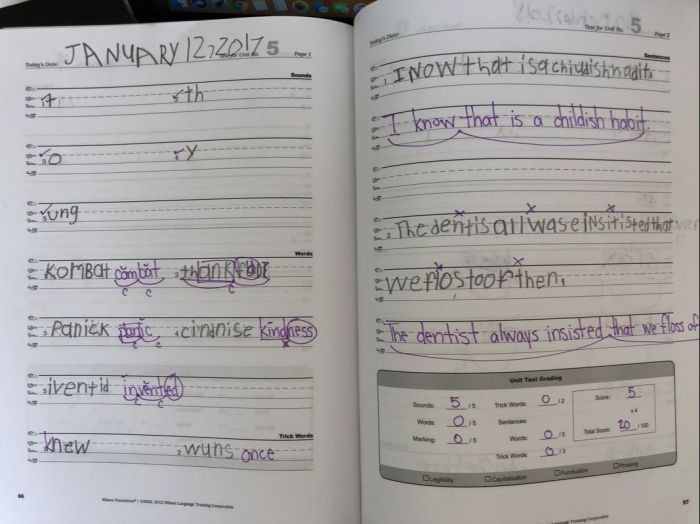 Today's Date: JANUARY 12, 2017 Test for Unit No. 5 Page 1
Sounds
th
o y
ung
Words
KOMBAt combat
Panick panic cindnise kindness
iventid invented
Trick Words
knew wuns once
96
Wilson Fundations® | ©2002, 2012 Wilson Language Training Corporation
Today's Date: Test for Unit No. 5 Page 2
Sentences
I know that is a childish habit.
The dentis allwase insitisted that
The dentist always insisted that we floss of
Unit Test Grading
Sounds: 5 /5 Trick Words: 0 /2 Score: 5
Words: 0 /5 Sentences: x4
Marking: 0 /5 Words: 0 /5 Total Score: 20 /100
Trick Words: 0 /3
Legibility Capitalization Punctuation Phrasing
97